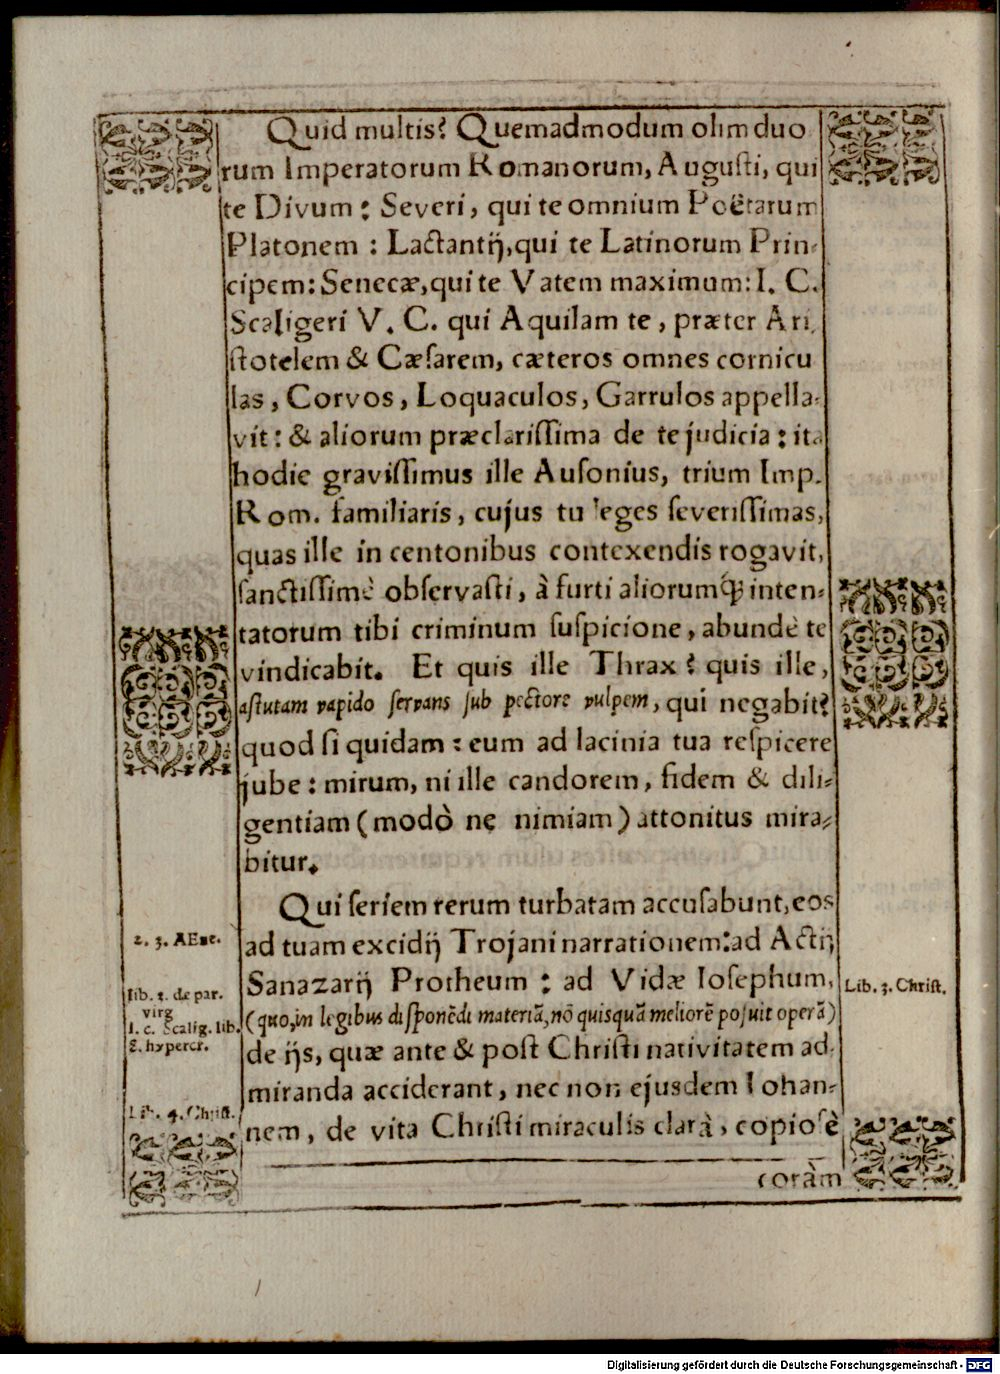 Quid multis? Quemadmodum olim duo
rum Imperatorum Romanorum, Augusti, qui
te Divum: Severi, qui te omnium Poëtarum
Platonem: Lactantij, qui te Latinorum Prin-
cipem: Senecæ, qui te Vatem maximum: I. C.
Scaligeri V. C. qui Aquilam te, præter Ari
stotelem & Cæsarem, cæteros omnes cornicu
las, Corvos, Loquaculos, Garrulos appella-
vit: & aliorum præclarissima de te judicia: ita
hodie gravissimus ille Ausonius, trium Imp.
Rom. familiaris, cujus tu leges severissimas,
quas ille in centonibus contexendis rogavit,
sanctissimè observasti, à furti aliorumq́; inten-
tatorum tibi criminum suspicione, abundè te
vindicabit. Et quis ille Thrax? quis ille,
astutam vapido servans sub pectore vulpem, qui negabit?
quod si quidam: eum ad lacinia tua respicere
jube: mirum, ni ille candorem, fidem & dili-
gentiam (modò ne nimiam) attonitus mira-
bitur.
Qui seriem rerum turbatam accusabunt, eos
2. 3. AEne.
ad tuam excidij Trojani narrationem: ad Actij
Sanazarij Protheum: ad Vidæ Iosephum,
Lib. 3. Christ.
lib. 1. de par.
virg
(quo, in legibus disponēdi materiā, nō quisquā meliorē posuit operā)
I. c. Scalig. lib.
de ijs, quæ ante & post Christi nativitatem ad-
6. hypercr.
miranda acciderant, nec non ejusdem Iohan-
Lib. 4. Christ.
nem, de vita Christi miraculis clarâ, copiosè
coràm
Digitalisierung gefördert durch die Deutsche Forschungsgemeinschaft - DFG